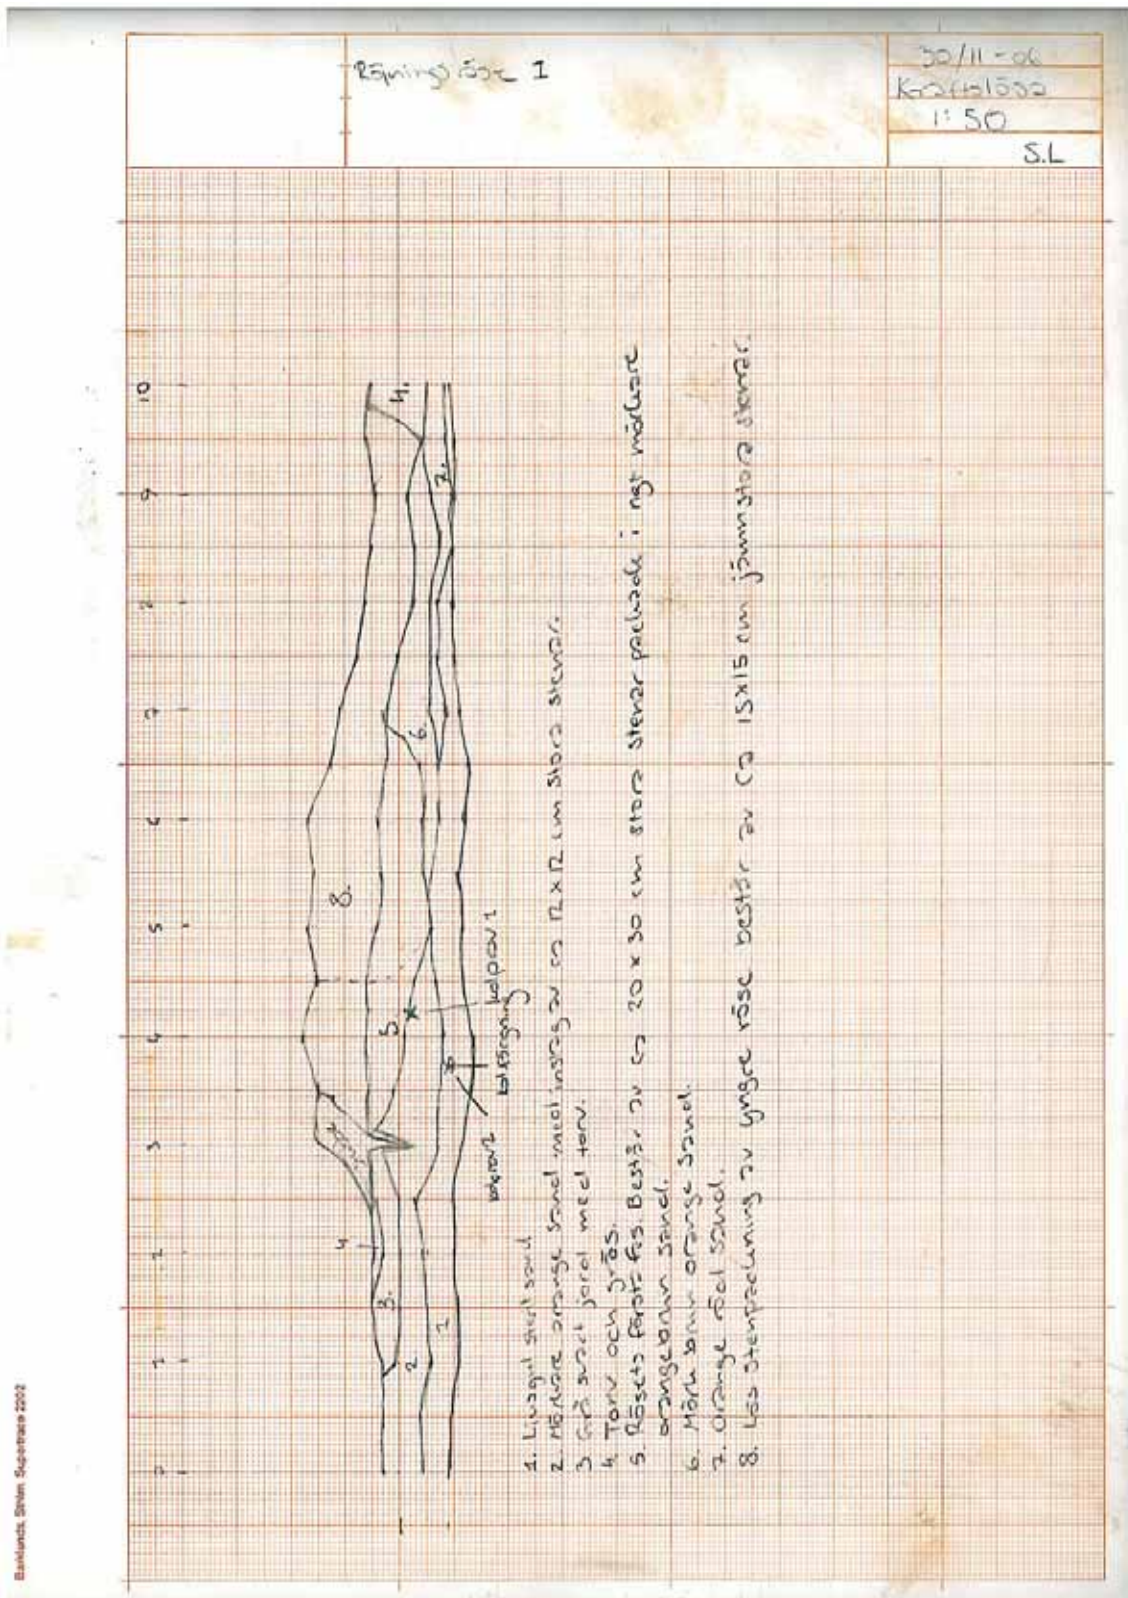 Röjningsröse I
30/11-06
Kraftslösa
1:50
S.L
0 1 2 3 4 5 6 7 8 9 10
1
2
3.
4
5
6
7.
8.
4.
kolprov 1
kolfärgning
kolprov 2
1. Ljusgul steril sand
2. Mörkare orange sand med inslag av ca 12x12 cm stora stenar.
3 Grå svart jord med torv.
4 Torv och gräs.
5. Rösets första fas. Består av ca 20 x 30 cm stora stenar packade i ngt mörkare
orangebrun sand.
6. Mörk brun orange sand.
7. Orange röd sand.
8. Lös stenpackning av yngre röse består av ca 15x15 cm jämnstora stenar.
Barklunds, Ström, Supertrace 2202